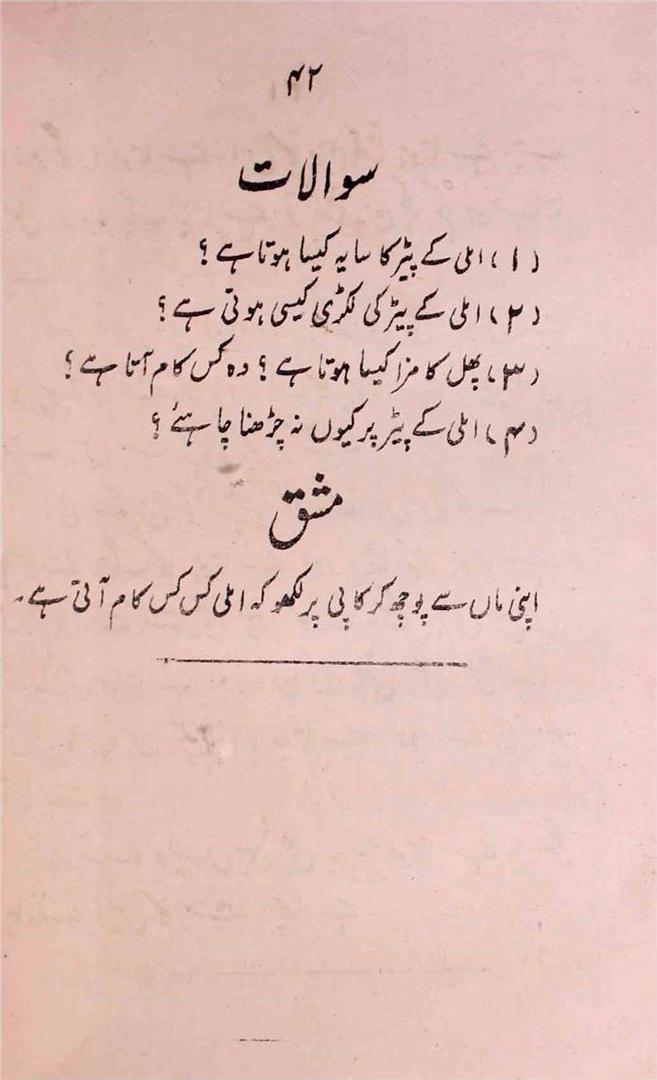 ۴۲
سوالات
(۱) املی کے پیڑ کا سایہ کیسا ہوتا ہے؟
(۲) املی کے پیڑ کی لکڑی کیسی ہوتی ہے؟
(۳) پھل کا مزا کیسا ہوتا ہے؟ وہ کس کام آتا ہے؟
(۴) املی کے پیڑ پر کیوں نہ چڑھنا چاہئے؟
مشق
اپنی ماں سے پوچھ کر کاپی پر لکھو کہ املی کس کس کام آتی ہے۔